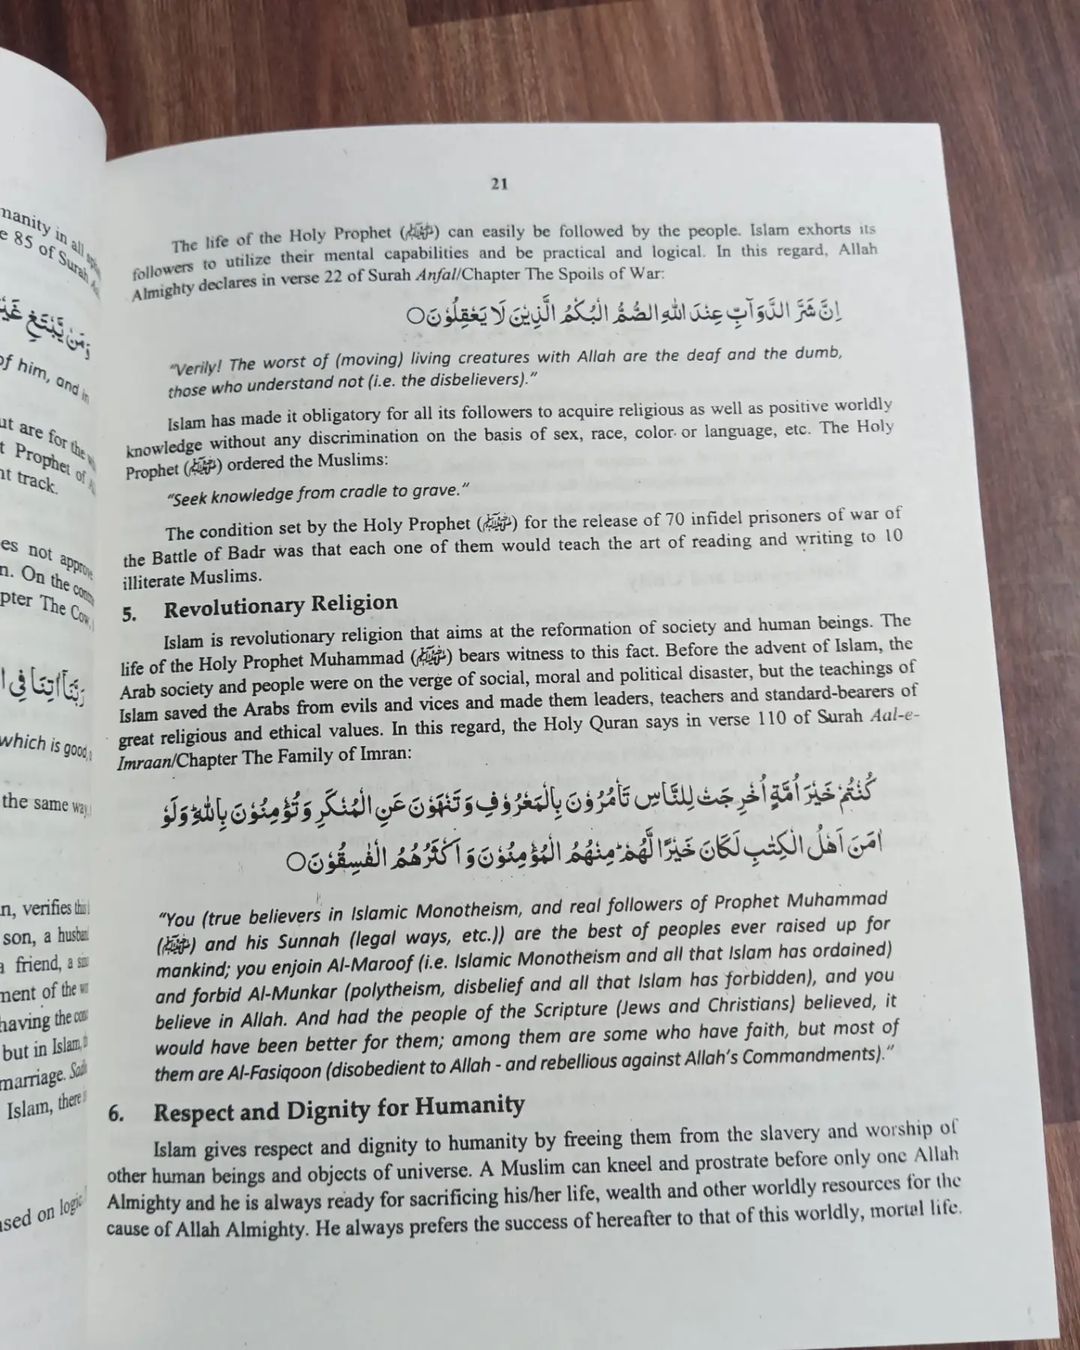 manity in all
e 85 of Surah
وَمَنْ يَّبْتَغِ غَيْرَ
of him, and in
ut are for the
t Prophet of
nt track.
es not approve
n. On the
pter The Cow,
رَبَّنَآ اٰتِنَا فِی
which is good,
the same way,
n, verifies
son, a husband
a friend, a
ment of the
having the
but in Islam,
marriage.
Islam, there
ased on logic
21
The life of the Holy Prophet (ﷺ) can easily be followed by the people. Islam exhorts its
followers to utilize their mental capabilities and be practical and logical. In this regard, Allah
Almighty declares in verse 22 of Surah Anfal/Chapter The Spoils of War:
اِنَّ شَرَّ الدَّوَآبِّ عِنْدَ اللّٰهِ الصُّمُّ الْبُكْمُ الَّذِيْنَ لَا يَعْقِلُوْنَ○
“Verily! The worst of (moving) living creatures with Allah are the deaf and the dumb,
those who understand not (i.e. the disbelievers).”
Islam has made it obligatory for all its followers to acquire religious as well as positive worldly
knowledge without any discrimination on the basis of sex, race, color or language, etc. The Holy
Prophet (ﷺ) ordered the Muslims:
“Seek knowledge from cradle to grave.”
The condition set by the Holy Prophet (ﷺ) for the release of 70 infidel prisoners of war of
the Battle of Badr was that each one of them would teach the art of reading and writing to 10
illiterate Muslims.
5. Revolutionary Religion
Islam is revolutionary religion that aims at the reformation of society and human beings. The
life of the Holy Prophet Muhammad (ﷺ) bears witness to this fact. Before the advent of Islam, the
Arab society and people were on the verge of social, moral and political disaster, but the teachings of
Islam saved the Arabs from evils and vices and made them leaders, teachers and standard-bearers of
great religious and ethical values. In this regard, the Holy Quran says in verse 110 of Surah Aal-e-
Imraan/Chapter The Family of Imran:
كُنْتُمْ خَيْرَ اُمَّةٍ اُخْرِجَتْ لِلنَّاسِ تَاْمُرُوْنَ بِالْمَعْرُوْفِ وَتَنْهَوْنَ عَنِ الْمُنْكَرِ وَتُؤْمِنُوْنَ بِاللّٰهِ ؕ وَلَوْ
اٰمَنَ اَهْلُ الْكِتٰبِ لَكَانَ خَيْرًا لَّهُمْ ؕ مِنْهُمُ الْمُؤْمِنُوْنَ وَ اَكْثَرُهُمُ الْفٰسِقُوْنَ○
“You (true believers in Islamic Monotheism, and real followers of Prophet Muhammad
(ﷺ) and his Sunnah (legal ways, etc.)) are the best of peoples ever raised up for
mankind; you enjoin Al-Maroof (i.e. Islamic Monotheism and all that Islam has ordained)
and forbid Al-Munkar (polytheism, disbelief and all that Islam has forbidden), and you
believe in Allah. And had the people of the Scripture (Jews and Christians) believed, it
would have been better for them; among them are some who have faith, but most of
them are Al-Fasiqoon (disobedient to Allah - and rebellious against Allah’s Commandments).”
6. Respect and Dignity for Humanity
Islam gives respect and dignity to humanity by freeing them from the slavery and worship of
other human beings and objects of universe. A Muslim can kneel and prostrate before only one Allah
Almighty and he is always ready for sacrificing his/her life, wealth and other worldly resources for the
cause of Allah Almighty. He always prefers the success of hereafter to that of this worldly, mortal life.